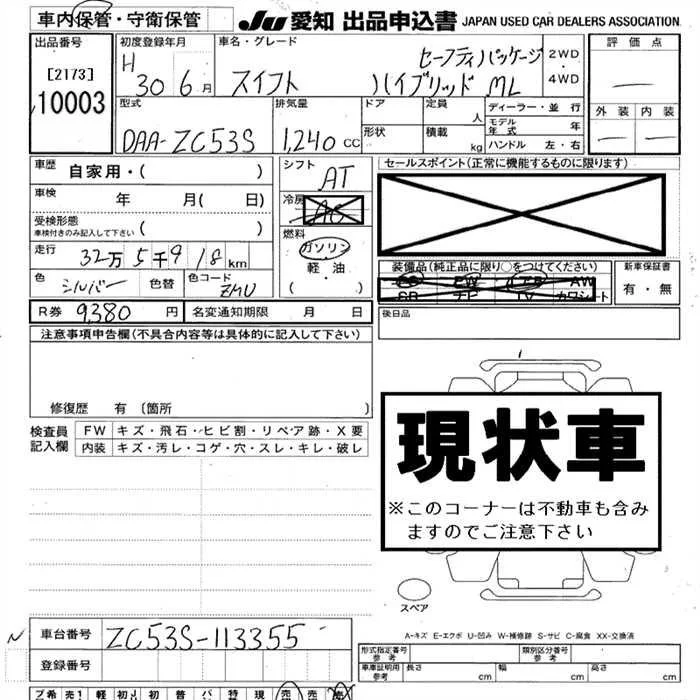 車内保管・守衛保管 JU 愛知 出品申込書 JAPAN USED CAR DEALERS ASSOCIATION.
出品番号 初度登録年月 車名・グレード 評価点
[2173] H 30 6月 スイフト セーフティパッケージ 2WD
10003 ハイブリッド ML 4WD
型式 排気量 ドア 定員 人 ディーラー・並行 外装 内装
DAA-ZC53S 1,240 CC 形状 積載 kg モデル年式 年
ハンドル 左・右
車歴 自家用・( ) シフト AT セールスポイント(正常に機能するものに限ります)
車検 年 月( 日) 冷房
受検形態 ( )
車検付きのみ記入して下さい
燃料 ガソリン
走行 32万5千918km 軽・油
( )
装備品(純正品に限り○をつけてください) 新車保証書
AW
SR ナビ TV カワシート 有・無
色 シルバー 色替 色コード ZMU
R券 9,380 円 名変通知期限 月 日 後日品
注意事項申告欄(不具合内容等は具体的に記入して下さい)
修復歴 有 [箇所 ]
検査員記入欄 FW キズ・飛石・ヒビ割・リペア跡・X要
内装 キズ・汚レ・コゲ・穴・スレ・キレ・破レ
現状車
※このコーナーは不動車も含み
ますのでご注意下さい
スペア
A-キズ E-エクボ U-凹み W-補修跡 S-サビ C-腐食 XX-交換済
車台番号 ZC53S-113355
登録番号
形式指定番号 参考 類別区分番号 参考
車庫証明用 参考 長さ cm 幅 cm 高さ cm